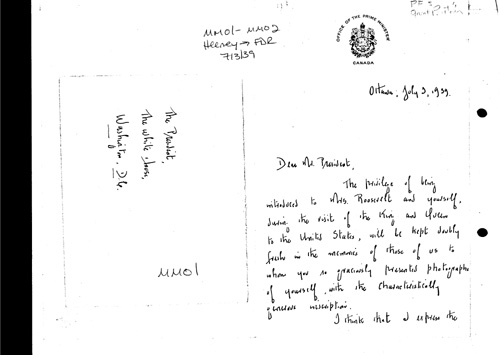 MM01 - MM02
Heeney → FDR
7/3/39
OFFICE OF THE PRIME MINISTER
CANADA
Ottawa, July 3, 1939.
The President,
The White House,
Washington, D.C.
MM01
Dear Mr. President,
The privilege of being
introduced to Mrs. Roosevelt and yourself,
during the visit of the King and Queen
to the United States, will be kept doubly
fresh in the memories of those of us to
whom you so graciously presented photographs
of yourself, with the characteristically
generous inscription.
I think that I express the